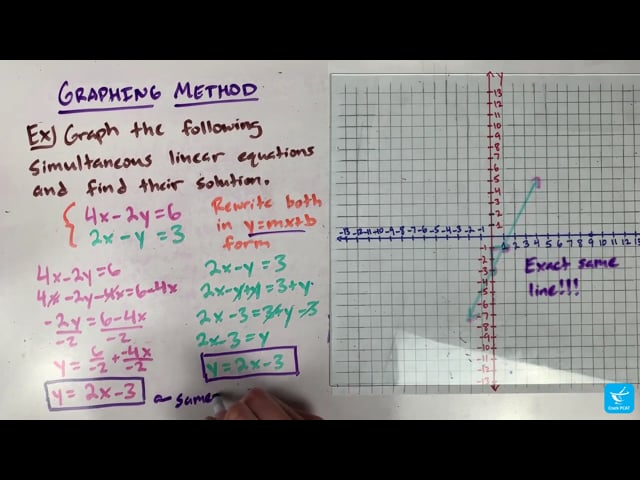 GRAPHING METHOD
Ex) Graph the following
simultaneous linear equations
and find their solution.
4x-2y=6
2x-y=3
Rewrite both
in y=mx+b
form
4x-2y=6
4x-2y-4x=6-4x
-2y/-2 = 6-4x/-2
y = 6/-2 + -4x/-2
y = 2x-3
2x-y=3
2x-y+y=3+y
2x-3=3+y-3
2x-3=y
y=2x-3
same
Y
13
12
11
10
9
8
7
6
5
4
3
2
1
-13 -12 -11 -10 -9 -8 -7 -6 -5 -4 -3 -2 -1
1 2 3 4 5 6 7 8 9 10 11 12 13
-1
-2
-3
-4
-5
-6
-7
-8
-9
-10
-11
-12
-13
Exact same
line!!!